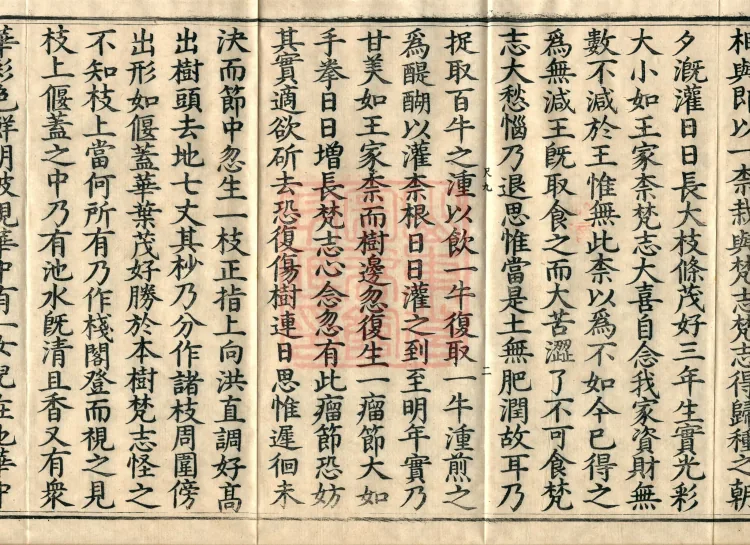 相與即以一柰栽與梵志梵志得歸種之朝
夕漑灌日日長大枝條茂好三年生實光彩
大小如王家柰梵志大喜自念我家資財無
數不減於王惟無此柰以爲不如今已得之
爲無減王旣取食之而大苦澀了不可食梵
志大愁惱乃退思惟當是土無肥潤故耳乃
尺九 二
捉取百牛之湩以飲一牛復取一牛湩煎之
爲醍醐以灌柰根日日灌之到至明年實乃
甘美如王家柰而樹邊忽復生一瘤節大如
手拳日日增長梵志心念忽有此瘤節恐妨
其實適欲斫去恐復傷樹連日思惟遲徊未
決而節中忽生一枝正指上向洪直調好高
出樹頭去地七丈其杪乃分作諸枝周圍傍
出形如偃蓋華葉茂好勝於本樹梵志怪之
不知枝上當何所有乃作棧閣登而視之見
枝上偃蓋之中乃有池水旣清且香又有衆
華彩色鮮明披視華中有一女兒在池華中